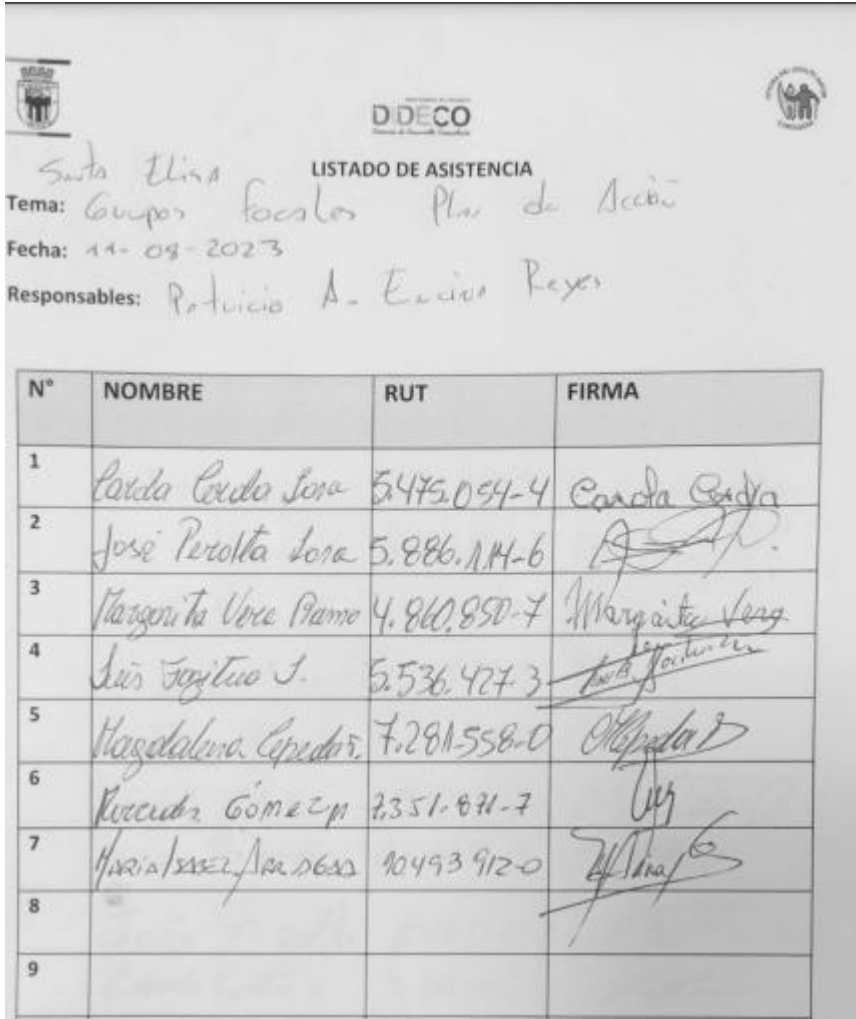 DIDECO
Santa Elisa
LISTADO DE ASISTENCIA
Tema: Grupos Focales Plan de Acción
Fecha: 11-08-2023
Responsables: Patricio A. Encina Reyes
N° NOMBRE RUT FIRMA
1 Carola Cerda Sosa 5.475.054-4 Carola Cerda
2 José Peralta Sosa 5.886.114-6
3 Margarita Vera Ramo 4.860.850-7 Margarita Vera
4 Luis J. 5.536.427-3
5 Magdalena Cepeda 7.281-558-0 MCepeda
6 Mercedes Gómez M 7.351-871-7
7 MARIA ISABEL 10493912-0
8
9